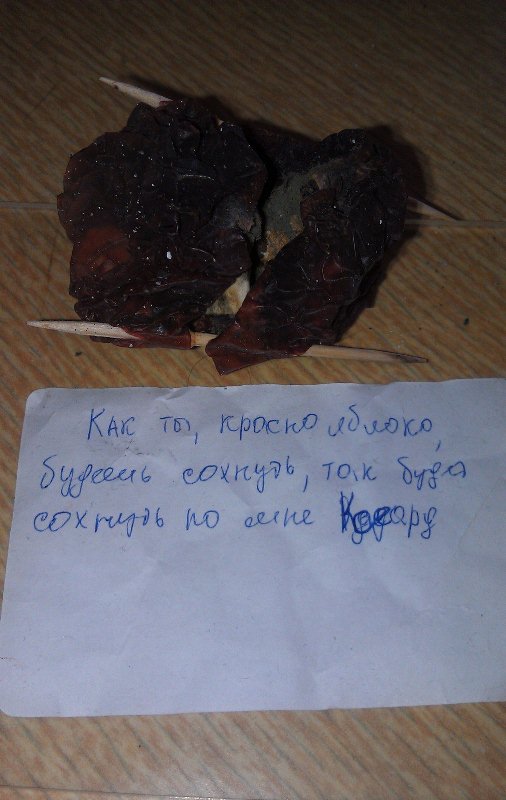 Как ты, красно яблоко,
будешь сохнудь, так буде
сохнудь по мне